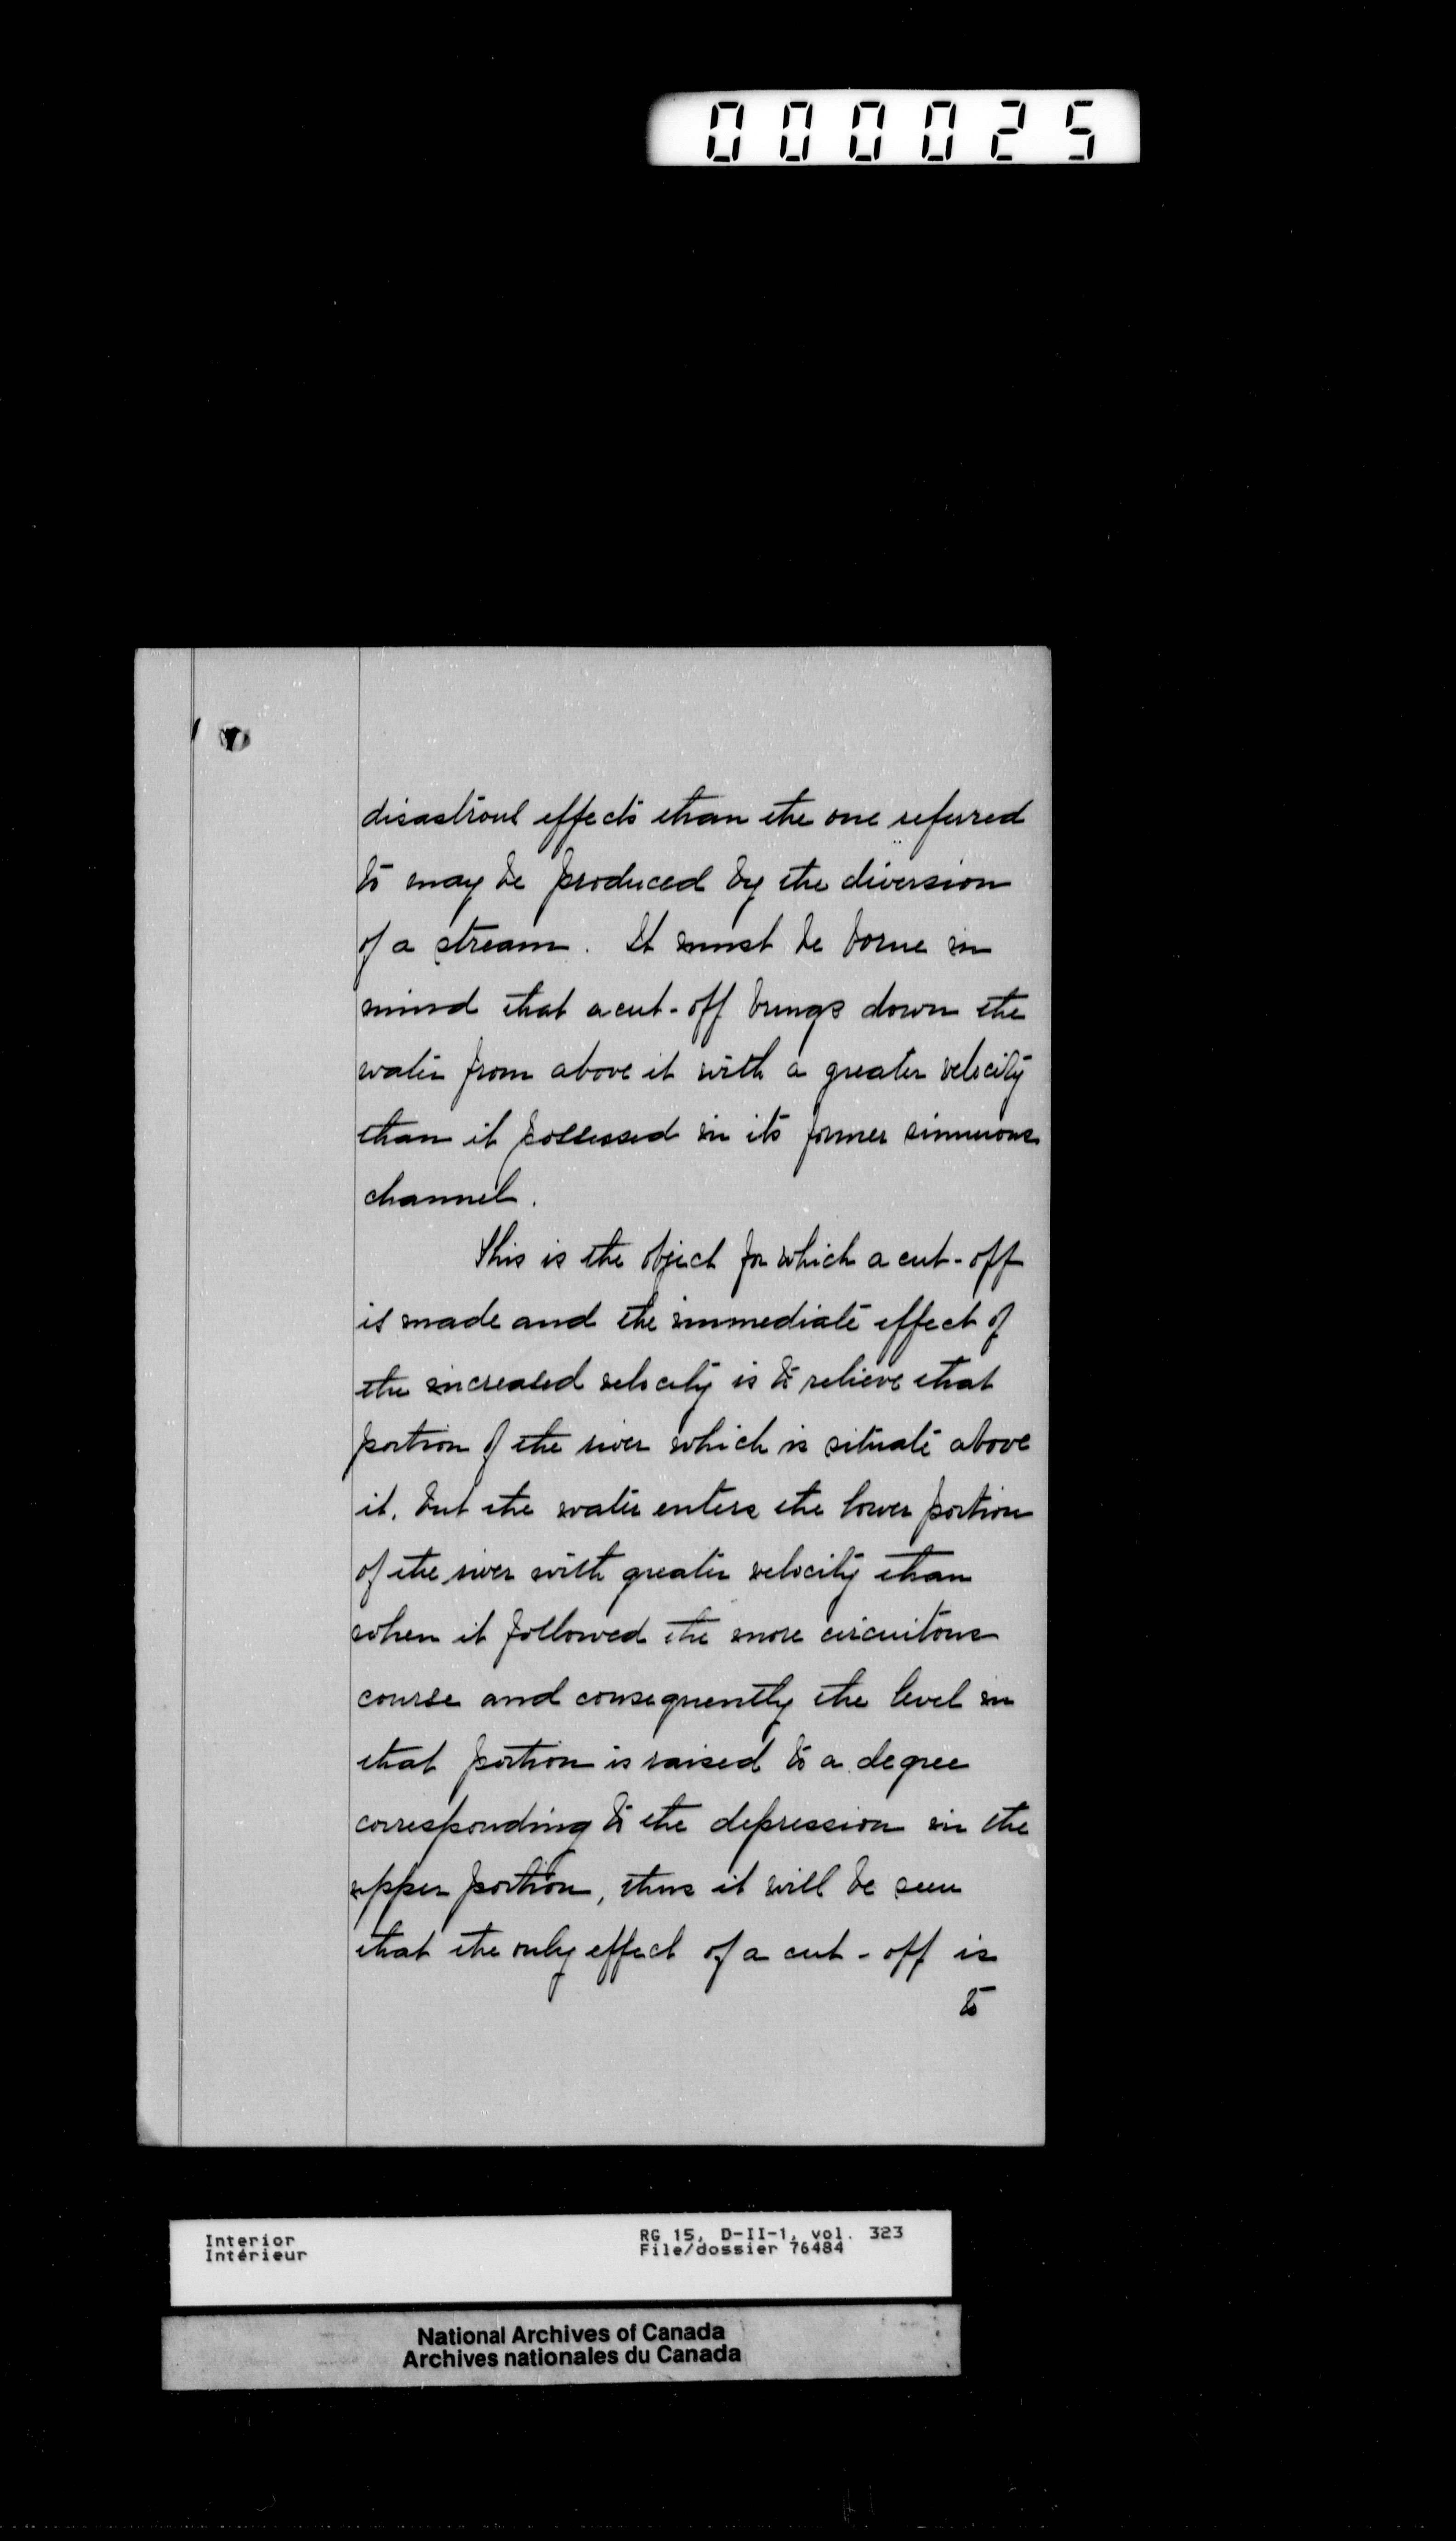 000025
disastrous effects than the one referred
to may be produced by the diversion
of a stream. It must be borne in
mind that a cut-off brings down the
water from above it with a greater velocity
than it possessed in its former sinuous
channel.
This is the object for which a cut-off
is made and the immediate effect of
the increased velocity is to relieve that
portion of the river which is situate above
it, but the water enters the lower portion
of the river with greater velocity than
when it followed the more circuitous
course and consequently the level in
that portion is raised to a degree
corresponding to the depression in the
upper portion, thus it will be seen
that the only effect of a cut-off is
to
Interior
Intérieur
RG 15, D-II-1, vol. 323
File/dossier 76484
National Archives of Canada
Archives nationales du Canada